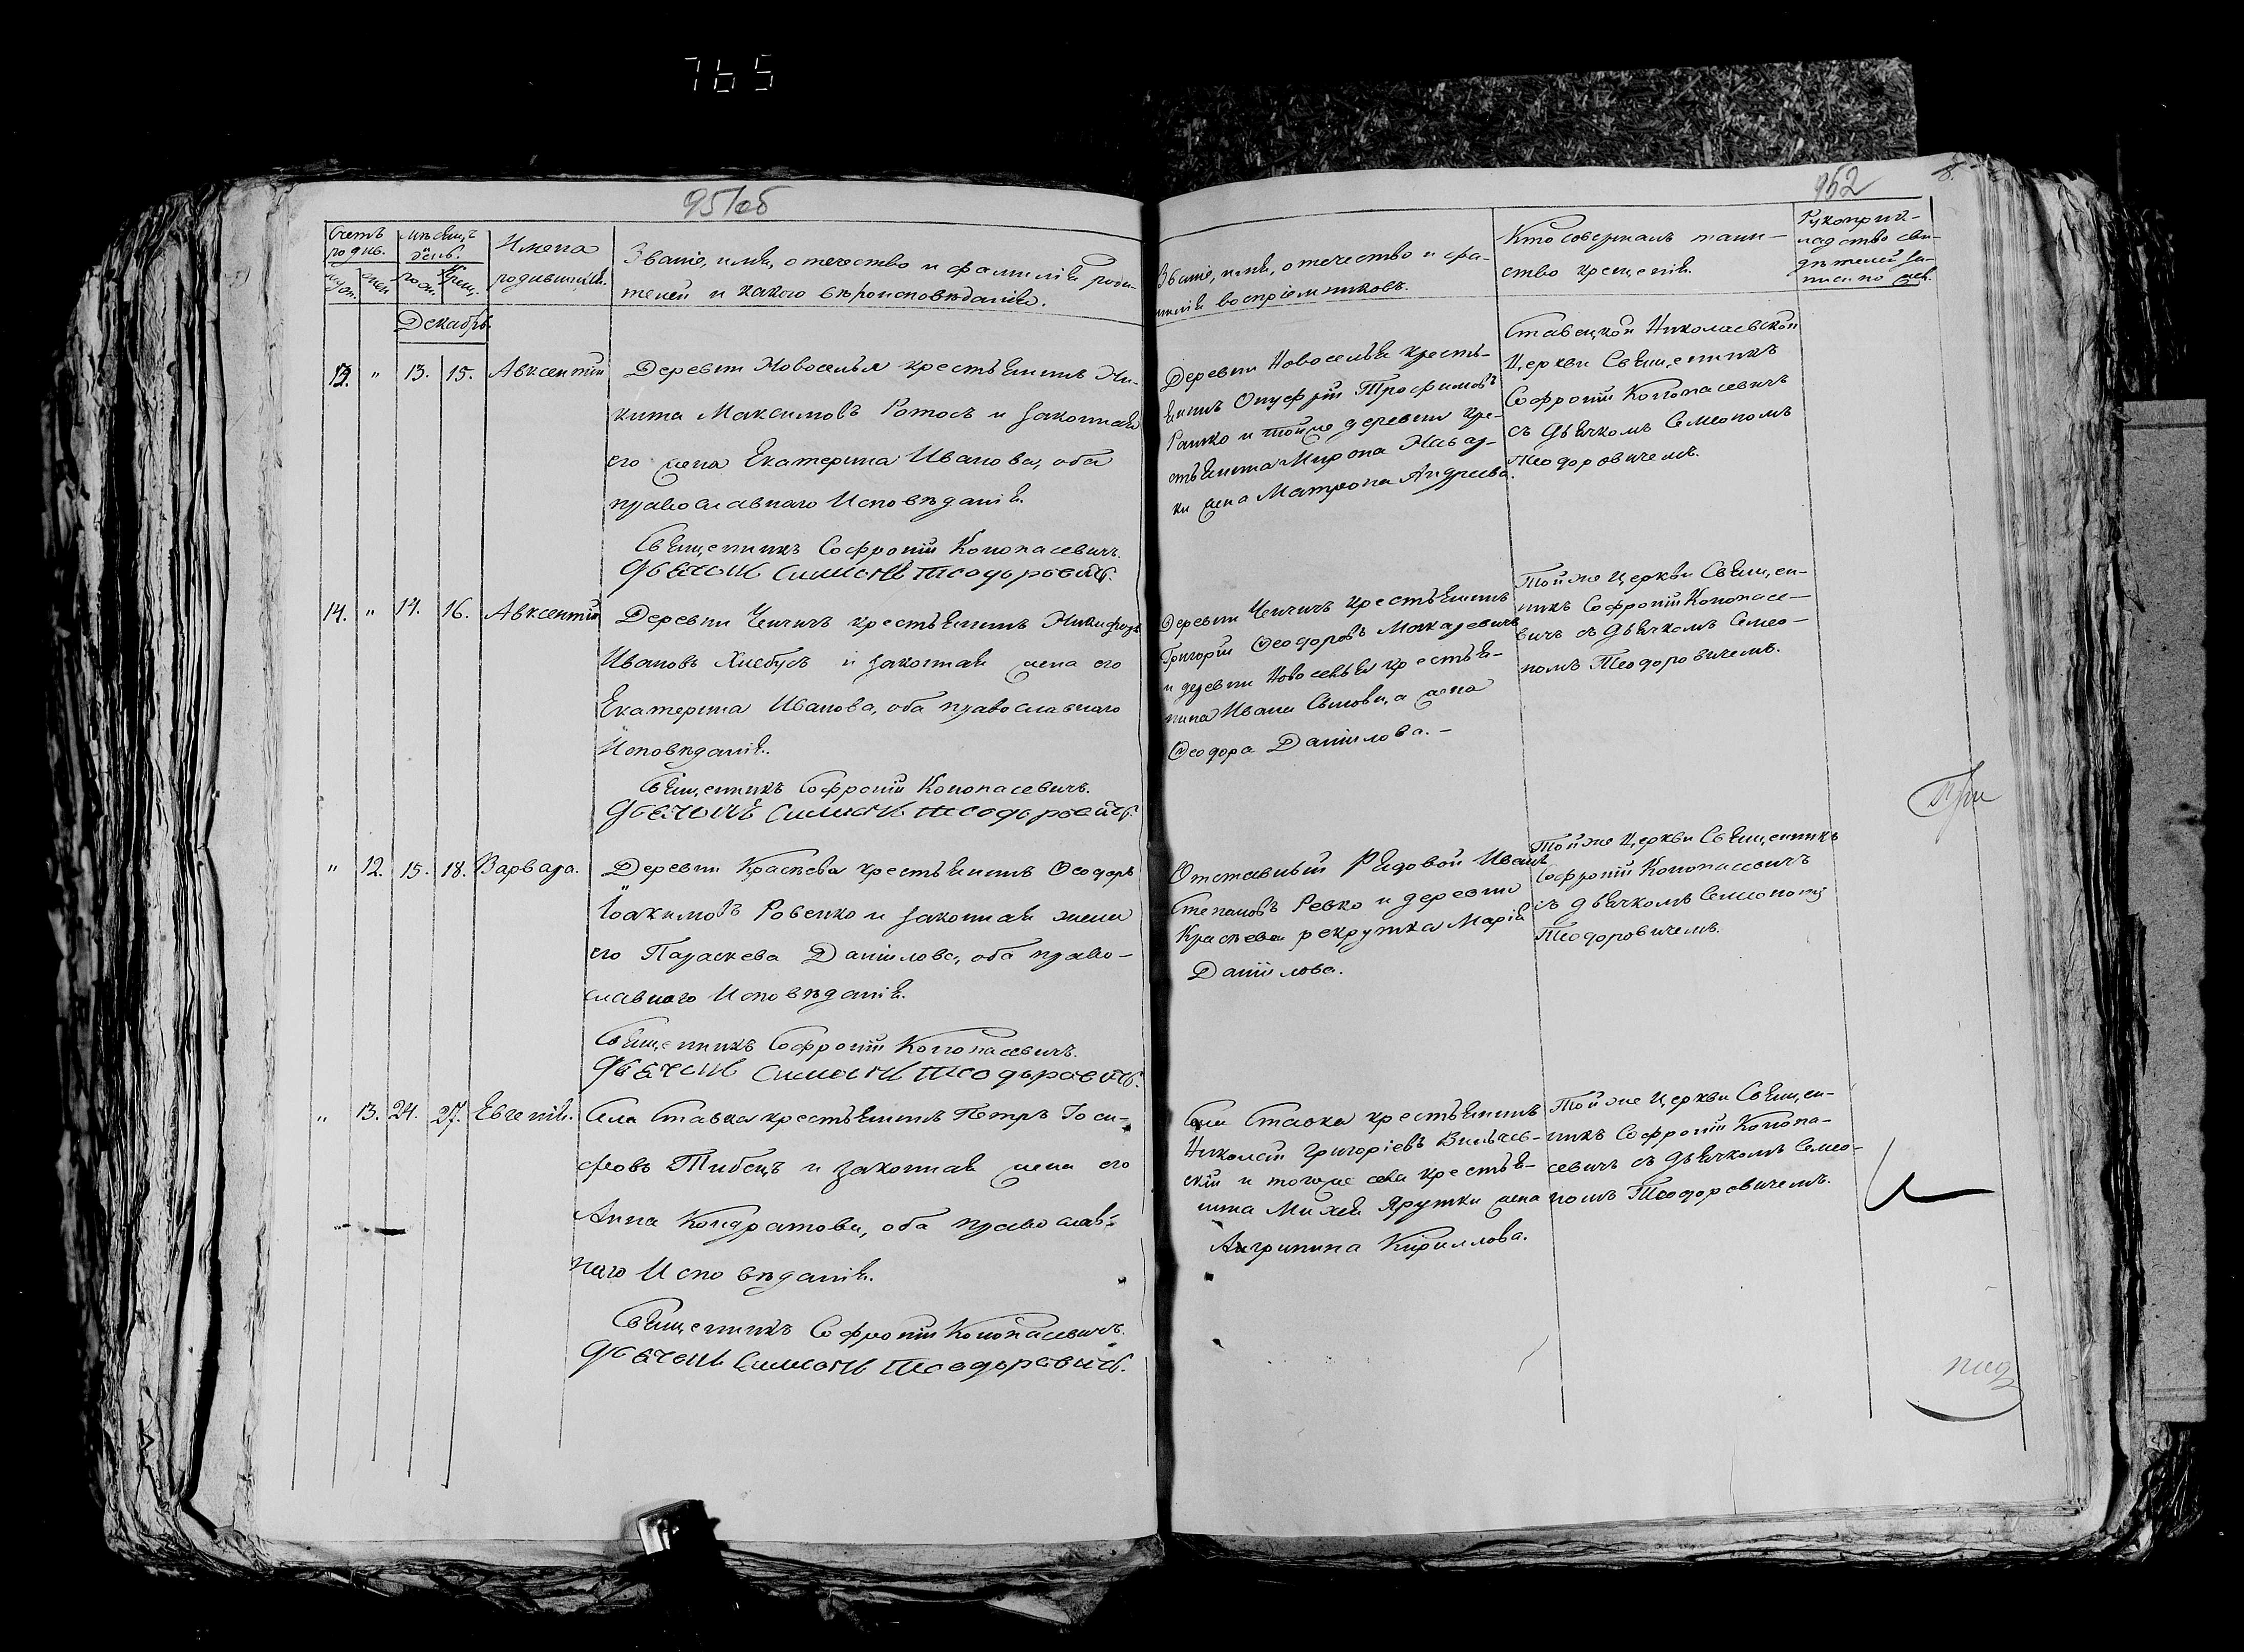 765
951об
Счетъ
родив.
муж.
жен.
Мѣсяцъ
и
день.
рожд.
Крещ.
Имена
родившихся.
Званіе, имя, отечество и фамилія роди-
телей и какого вѣроисповѣданія.
Декабрь
13. " 13. 15. Авксентій
Деревни Новоселья крестьянинъ Ни-
кита Максимовъ Ротосъ и законная
его жена Екатерина Иванова, оба
православнаго Исповѣданія.
Священникъ Софроній Конопасевичъ.
Дьячокъ Симеонъ Теодоровичъ.
14. " 14. 16. Авксентій
Деревни Ченчичъ крестьянинъ Никифоръ
Ивановъ и законная жена его
Екатерина Иванова, оба православнаго
Исповѣданія.
Священникъ Софроній Конопасевичъ.
Дьячокъ Симеонъ Теодоровичъ.
" 12. 15. 18. Варвара.
Деревни Красѣева крестьянинъ Ѳеодоръ
Іоакимовъ Ровенко и законная жена
его Параскева Даніилова, оба право-
славнаго Исповѣданія.
Священникъ Софроній Конопасевичъ.
Дьячокъ Симеонъ Теодоровичъ.
" 13. 24. 27. Евгенія.
Села Ставка крестьянинъ Петръ Іоси-
фовъ Тибецъ и законная жена его
Анна Кондратова, оба православ-
наго Исповѣданія.
Священникъ Софроній Конопасевичъ.
Дьячокъ Симеонъ Теодоровичъ.
952
Званіе, имя, отечество и фа-
милія воспріемниковъ.
Кто совершалъ таин-
ство крещенія.
Рукоприк-
ладство сви-
дѣтелей за-
писи по жел.
Деревни Новоселья кресть-
янинъ Онуфрій Трофимовъ
Ратко и тойже деревни кре-
стьянина Мирона Навад-
ки жена Матрона Андреева.
Ставецкой Николаевской
Церкви Священникъ
Софроній Конопасевичъ
съ Дьячкомъ Семеономъ
Теодоровичемъ.
Деревни Ченчичъ крестьянинъ
Григорій Ѳеодоровъ Макаревичъ
и деревни Новоселья крестья-
нина Ивана жена
Ѳеодора Даніилова. -
Тойже Церкви Священ-
никъ Софроній Конопасе-
вичъ съ Дьячкомъ Семео-
номъ Теодоровичемъ.
Отставный Рядовой Иванъ
Степановъ Ревко и деревни
Красѣева рекрутка Марія
Даніилова.
Тойже Церкви Священникъ
Софроній Конопасевичъ
съ дьячкомъ Семеономъ
Теодоровичемъ.
Села Ставка крестьянинъ
Николай Григоріевъ Вильчев-
скій и тогоже села крестья-
нина Михея Ярутки жена
Агрипина Кириллова.
Тойже Церкви Священ-
никъ Софроній Конопа-
севичъ съ Дьячкомъ Семео-
номъ Теодоровичемъ.
При